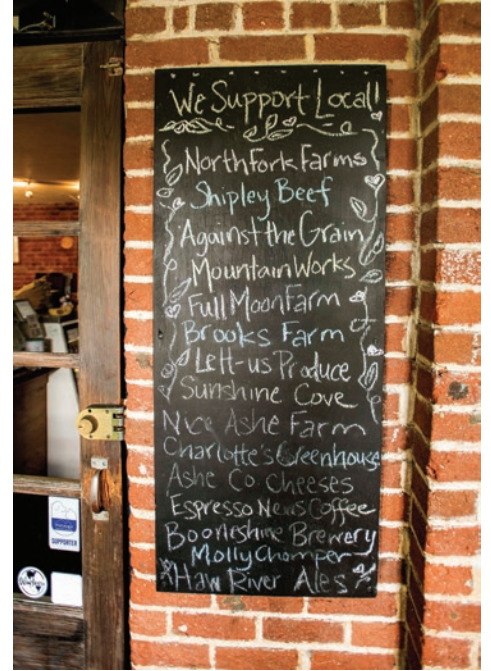 We Support Local!
North Fork Farms
Shipley Beef
Against the Grain
Mountain Works
Full Moon Farm
Brooks Farm
Lett-us Produce
Sunshine Cove
Nice Ashe Farm
Charlotte's Greenhouse
Ashe Co. Cheeses
Espresso News Coffee
Booneshine Brewery
Molly Chomper
Haw River Ales
SUPPORTER